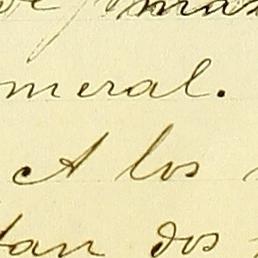 meral.
A los
tan dos